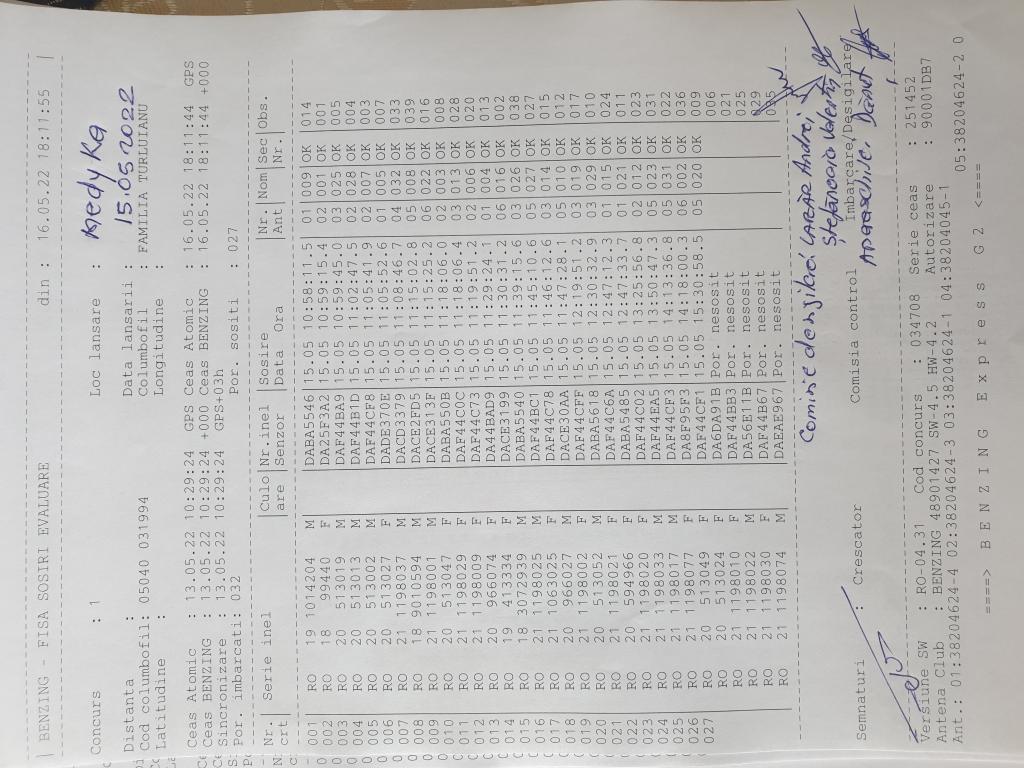 | BENZING - FISA SOSIRI EVALUARE din : 16.05.22 18:11:55 |
Concurs : 1 Loc lansare : Medyka
Distanta : Data lansarii : 15.05.2022
Cod columbofil: 05040 031994 Columbofil : FAMILIA TURLUIANU
Latitudine : Longitudine :
Ceas Atomic : 13.05.22 10:29:24 GPS Ceas Atomic : 16.05.22 18:11:44 GPS
Ceas BENZING : 13.05.22 10:29:24 +000 Ceas BENZING : 16.05.22 18:11:44 +000
Sincronizare : 13.05.22 10:29:24 GPS+03h
Por. imbarcati: 032 Por. sositi : 027
Nr. | Serie inel |Culo|Nr.inel |Sosire |Nr. |Nom|Sec|Obs.
crt| |are |Senzor |Data Ora |Ant |Nr.|Nr.|
001 RO 19 1014204 M DABA5546 15.05 10:58:11.5 01 009 OK 014
002 RO 18 99440 F DA25F3A2 15.05 10:59:15.4 02 001 OK 001
003 RO 20 513019 M DAF44BA9 15.05 10:59:45.0 03 025 OK 005
004 RO 20 513013 M DAF44B1D 15.05 11:02:44.7 02 028 OK 004
005 RO 20 513002 M DAF44CF8 15.05 11:05:41.9 02 007 OK 003
006 RO 20 513027 F DADE370E 15.05 11:05:52.6 01 005 OK 007
007 RO 21 1198037 M DACD3379 15.05 11:08:46.7 04 032 OK 033
008 RO 18 9010594 M DACE2FD5 15.05 11:15:02.8 05 008 OK 039
009 RO 21 1198001 M DACE313F 15.05 11:15:25.2 06 022 OK 016
010 RO 20 513047 F DABA550B 15.05 11:18:06.0 02 003 OK 008
011 RO 21 1198029 F DAF44C0C 15.05 11:18:06.4 03 013 OK 028
012 RO 21 1198009 F DAF44C73 15.05 11:19:51.2 02 006 OK 020
013 RO 20 966074 F DA44BAD9 15.05 11:29:24.1 01 004 OK 013
014 RO 19 413334 F DACE3199 15.05 11:30:31.2 06 016 OK 002
015 RO 18 3072939 M DABA5540 15.05 11:39:15.6 03 026 OK 038
016 RO 21 1198025 M DAF44BC1 15.05 11:45:10.6 05 027 OK 027
017 RO 21 1063025 F DAF44C78 15.05 11:46:12.6 03 014 OK 015
018 RO 20 966027 M DACE30AA 15.05 11:47:28.1 05 010 OK 012
019 RO 21 1198002 F DAF44CFF 15.05 12:19:51.2 03 019 OK 017
020 RO 20 513052 M DABA5618 15.05 12:30:32.9 03 029 OK 010
021 RO 21 1198021 F DAF44C6A 15.05 12:47:12.3 01 015 OK 024
022 RO 20 594066 F DABA5485 15.05 12:47:33.7 01 021 OK 011
023 RO 21 1198020 F DAF44C02 15.05 13:25:56.8 02 012 OK 023
024 RO 21 1198033 M DAF44EA5 15.05 13:50:47.3 05 023 OK 031
025 RO 21 1198017 M DAF44CF3 15.05 14:13:36.8 05 031 OK 022
026 RO 21 1198077 F DA8F95F3 15.05 14:18:00.3 06 002 OK 036
027 RO 20 513049 F DAF44CF1 15.05 15:30:58.5 05 020 OK 009
RO 20 513024 F DA6DA91B Por. nesosit 006
RO 21 1198010 F DAF44BB3 Por. nesosit 021
RO 22 1198022 M DA56E11B Por. nesosit 025
RO 21 1198030 F DAF44B67 Por. nesosit 029
RO 21 1198074 M DAEAE967 Por. nesosit
Andrei
Valentin
Semnaturi : Crescator Comisia control Imbarcare/Desigilare
Danut
Versiune SW : RO-04.31 Cod concurs : 034708 Serie ceas : 251452
Antena Club : BENZING 48901427 SW-4.5 HW-4.2 Autorizare : 90001DB7
Ant.: 01:38204624-4 02:38204624-3 03:38204624-1 04:38204045-1 05:38204624-2 0
====> B E N Z I N G E x p r e s s G 2 <====